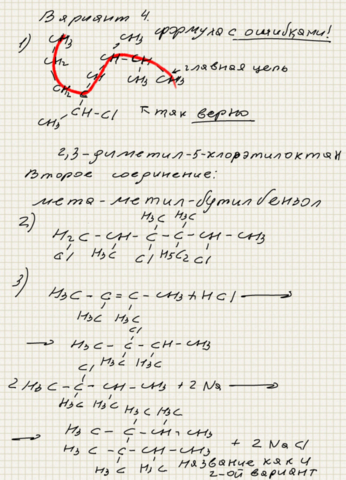 Вариант 4.
1) формула с ошибками!
CH3 CH3
CH2 CH-CH
CH CH3 CH3 главная цепь
CH2 C
CH3 CH-Cl так верно
2,3-диметил-5-хлорэтилоктан
Второе соединение:
мета-метил-бутилбензол
2)
H3C H3C
H2C - CH - CH - C - C - CH - CH3
Cl H3C Cl H5C2 Cl
3)
H3C - C = C - CH3 + HCl ⟶
H3C H3C
Cl
⟶ H3C - C - CH - CH3
H3C H3C
Cl
2 H3C - C - CH - CH3 + 2 Na ⟶
H3C H3C
H3C H3C
⟶ H3C - C - CH - CH3
H3C - C - CH - CH3 + 2 NaCl
H3C H3C название как и
2-ой вариант